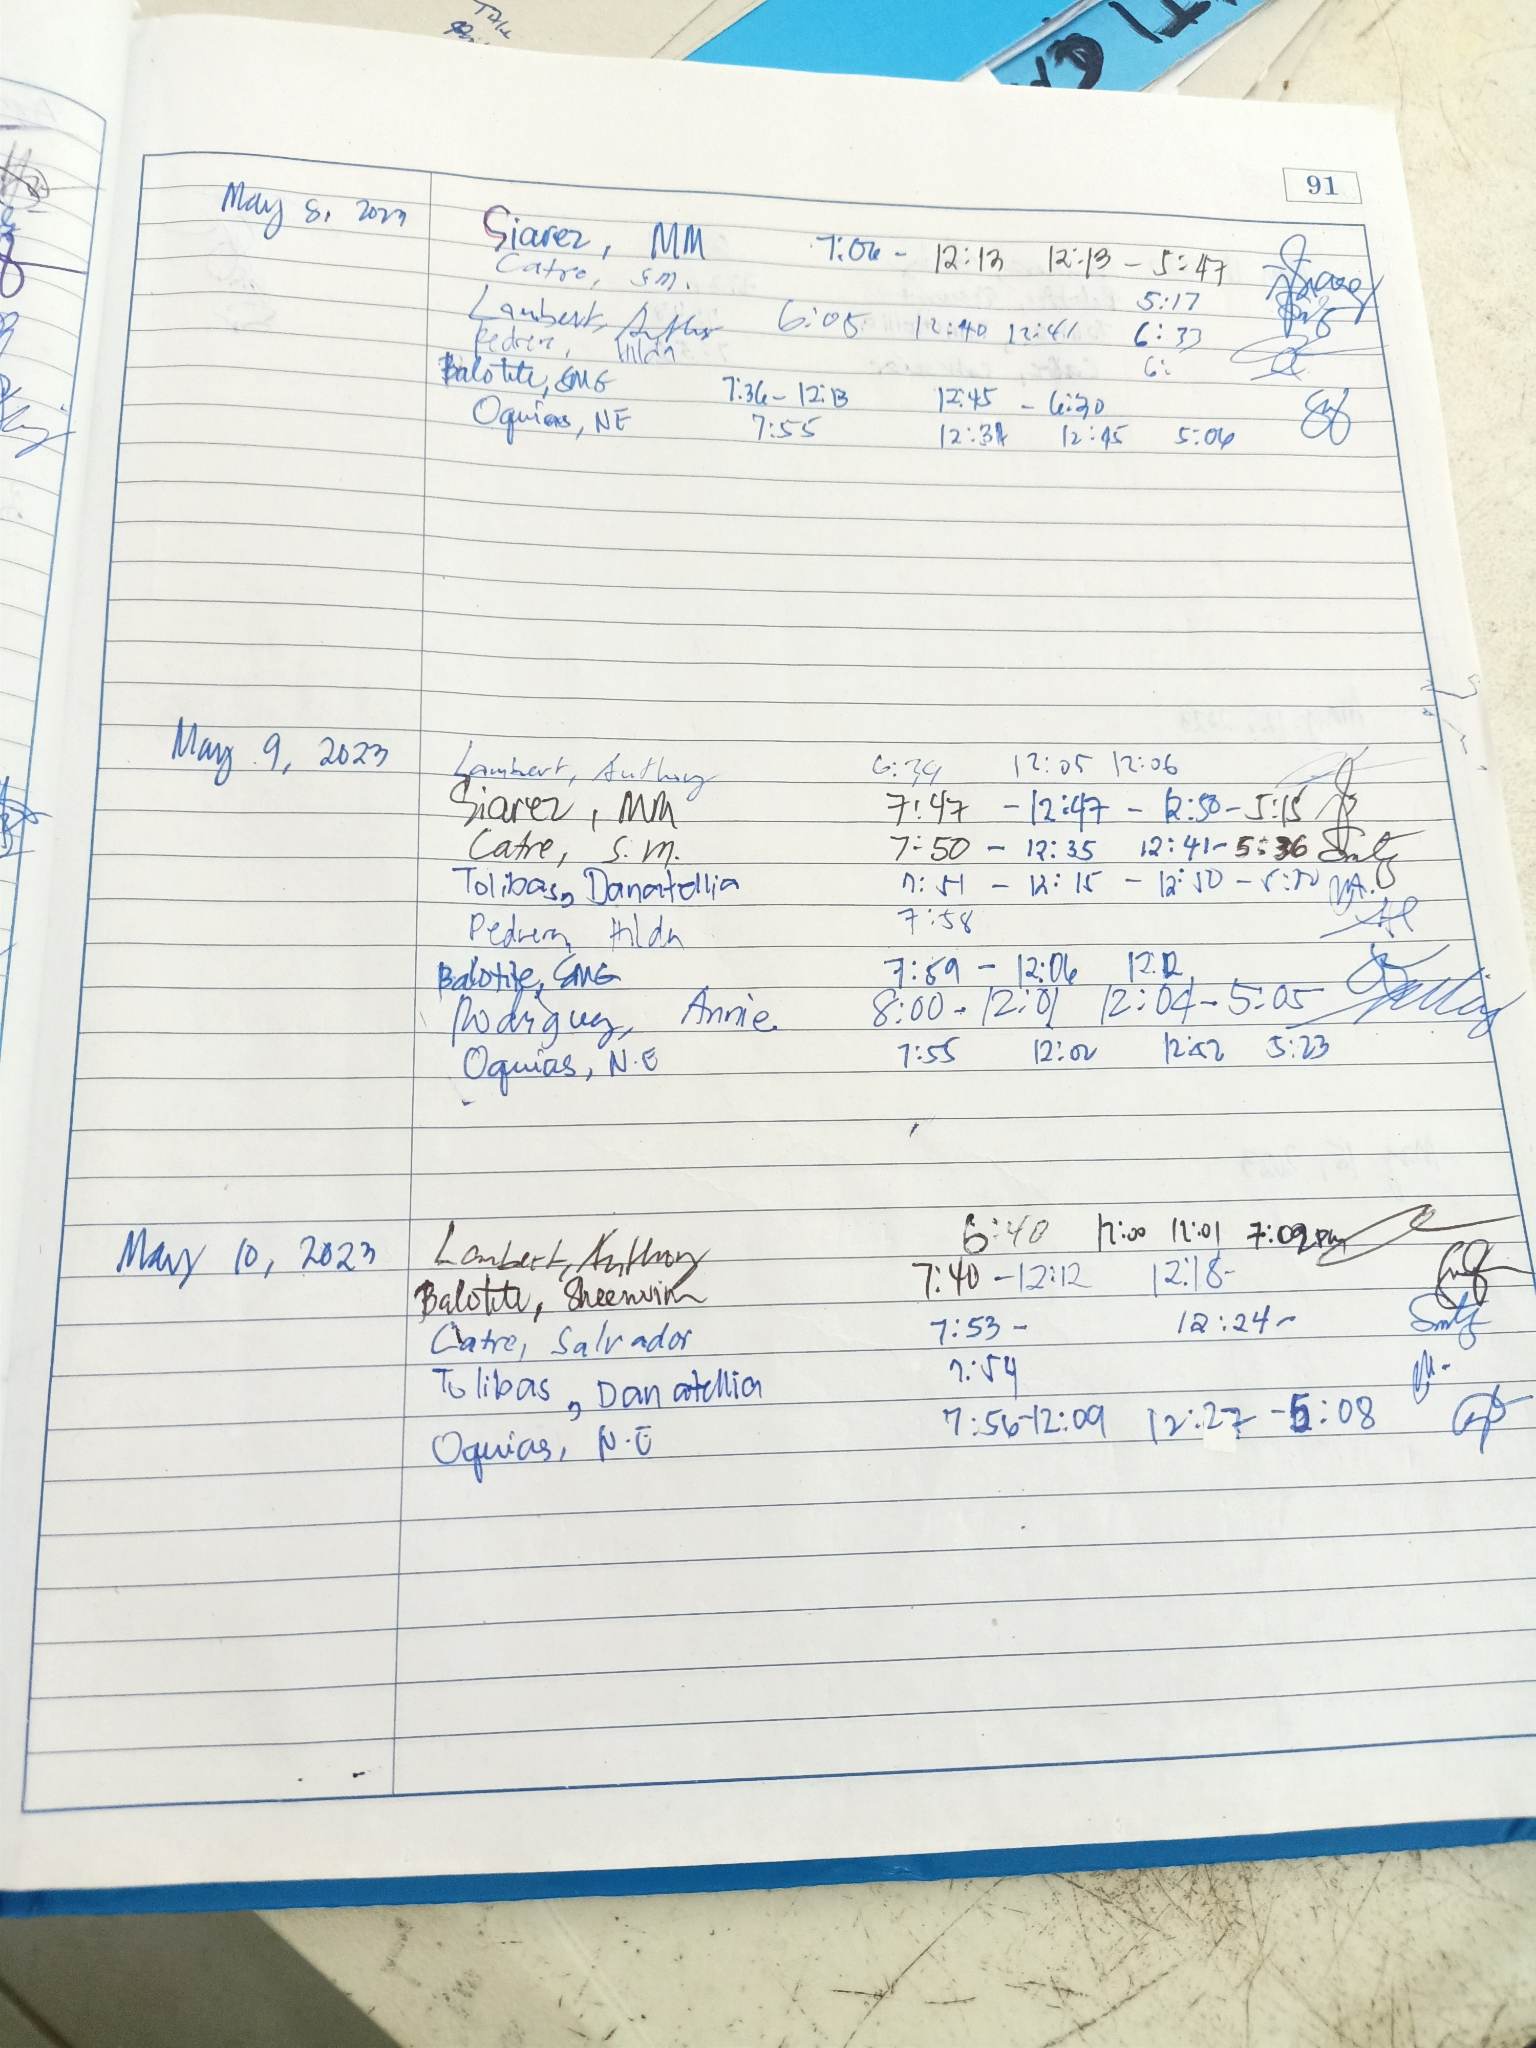 91
May 8, 2023
Siarez, MM 7:06 - 12:13 12:13 - 5:47
Catre, S.M. 5:17
Lambert, 6:05 12:40 12:41 6:33
Hilda 6:
Balotite, SMG 7:36 - 12:13 12:45 - 6:30
Oquias, NE 7:55 12:45 5:06
May 9, 2023
Lambert, Anthony 6:39 12:05 12:06
Siarez, MM 7:47 - 12:47 - 12:50 - 5:15
Catre, S.M. 7:50 - 12:35 12:41 - 5:36
Tolibas, Danatellia 7:51 - 12:15 - 12:50 -
Pedrera, Hilda 7:58
Balotite, SMG 7:59 - 12:06 12:12
Rodriguez, Annie 8:00 - 12:01 12:04 - 5:05
Oquias, N.E 7:55 12:02 12:52 5:23
May 10, 2023
Lambert, Anthony 6:40 12:00 12:01 7:09pm
Balotite, 7:40 - 12:12 12:18-
Catre, Salvador 7:53 - 12:24 -
Tolibas, Danatellia 7:54
Oquias, N.E 7:56-12:09 12:27 - 5:08